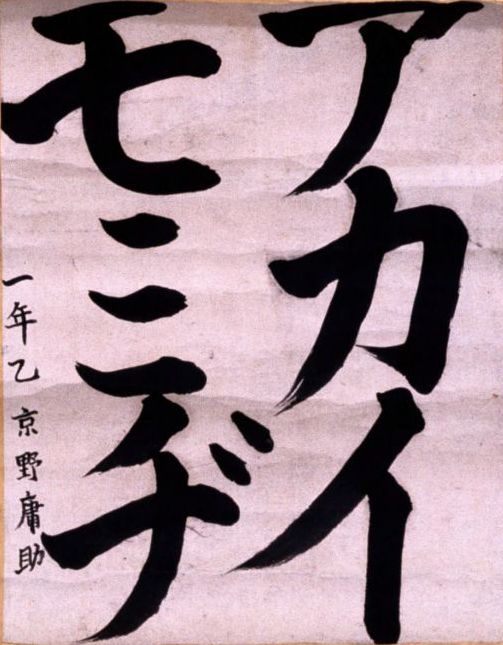 アカイ
モミヂ
一年乙 京野庸助